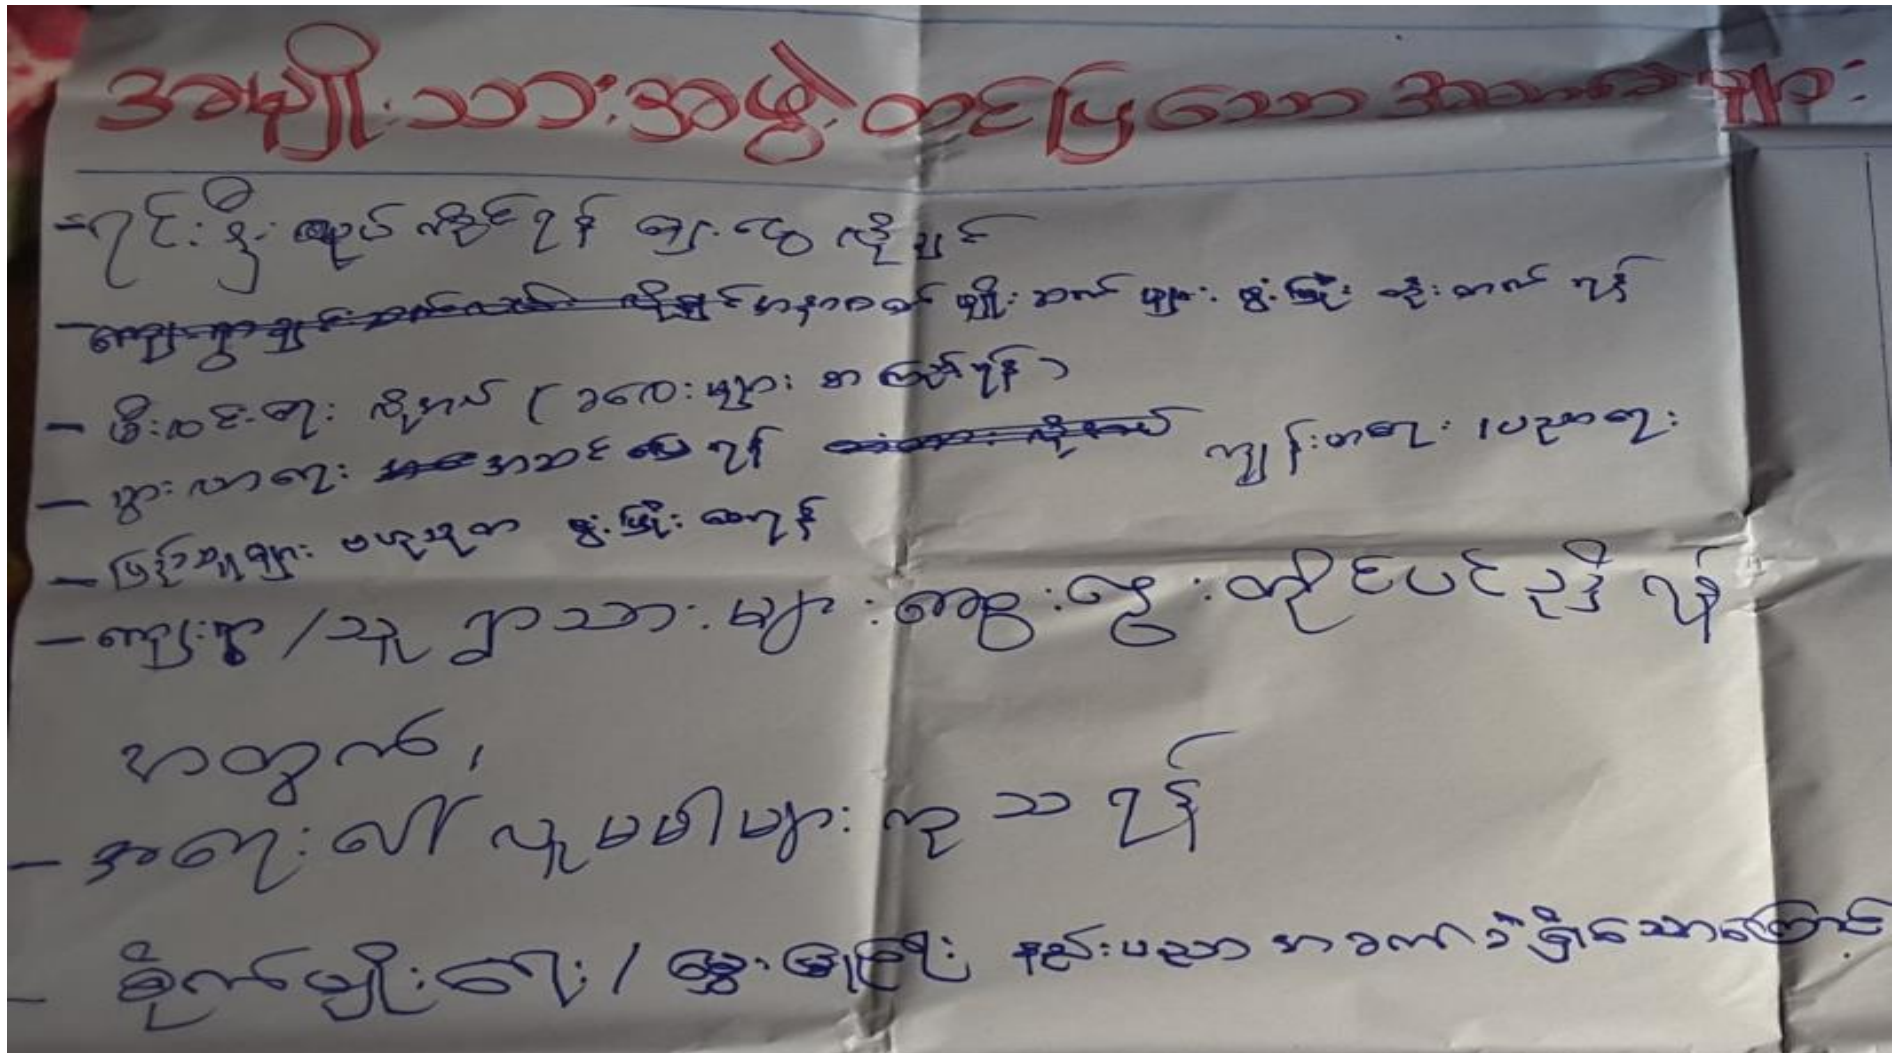 အမျိုးသားအဖွဲ့ တင်ပြသော အခက်ခဲများ
- ရင်းနှီး လုပ်ကိုင်ရန် ချေးငွေ လိုချင်
- အနာဂတ် မျိုးဆက် များ ဖွံ့ဖြိုး တိုးတက် ရန်
- မီးလင်းရေး လိုအပ် (ခလေးများ စာကြည့်ရန်)
- သွားလာရေး အဆင်ပြေရန် ကျန်းမာရေး ၊ ပညာရေး
- ပြည်သူများ ဗဟုသုတ ဖွံ့ဖြိုး စေရန်
- ကျေးရွာ / သူ ရွာသားများ ဆွေးနွေး တိုင်ပင်ညှိ ရန်
အတွက်၊
- အရေးပေါ် လူမမာများ ကုသ ရန်
- စိုက်ပျိုးရေး / မွေးမြူရေး နည်းပညာ အခက်ခဲ ရှိသောကြောင့်